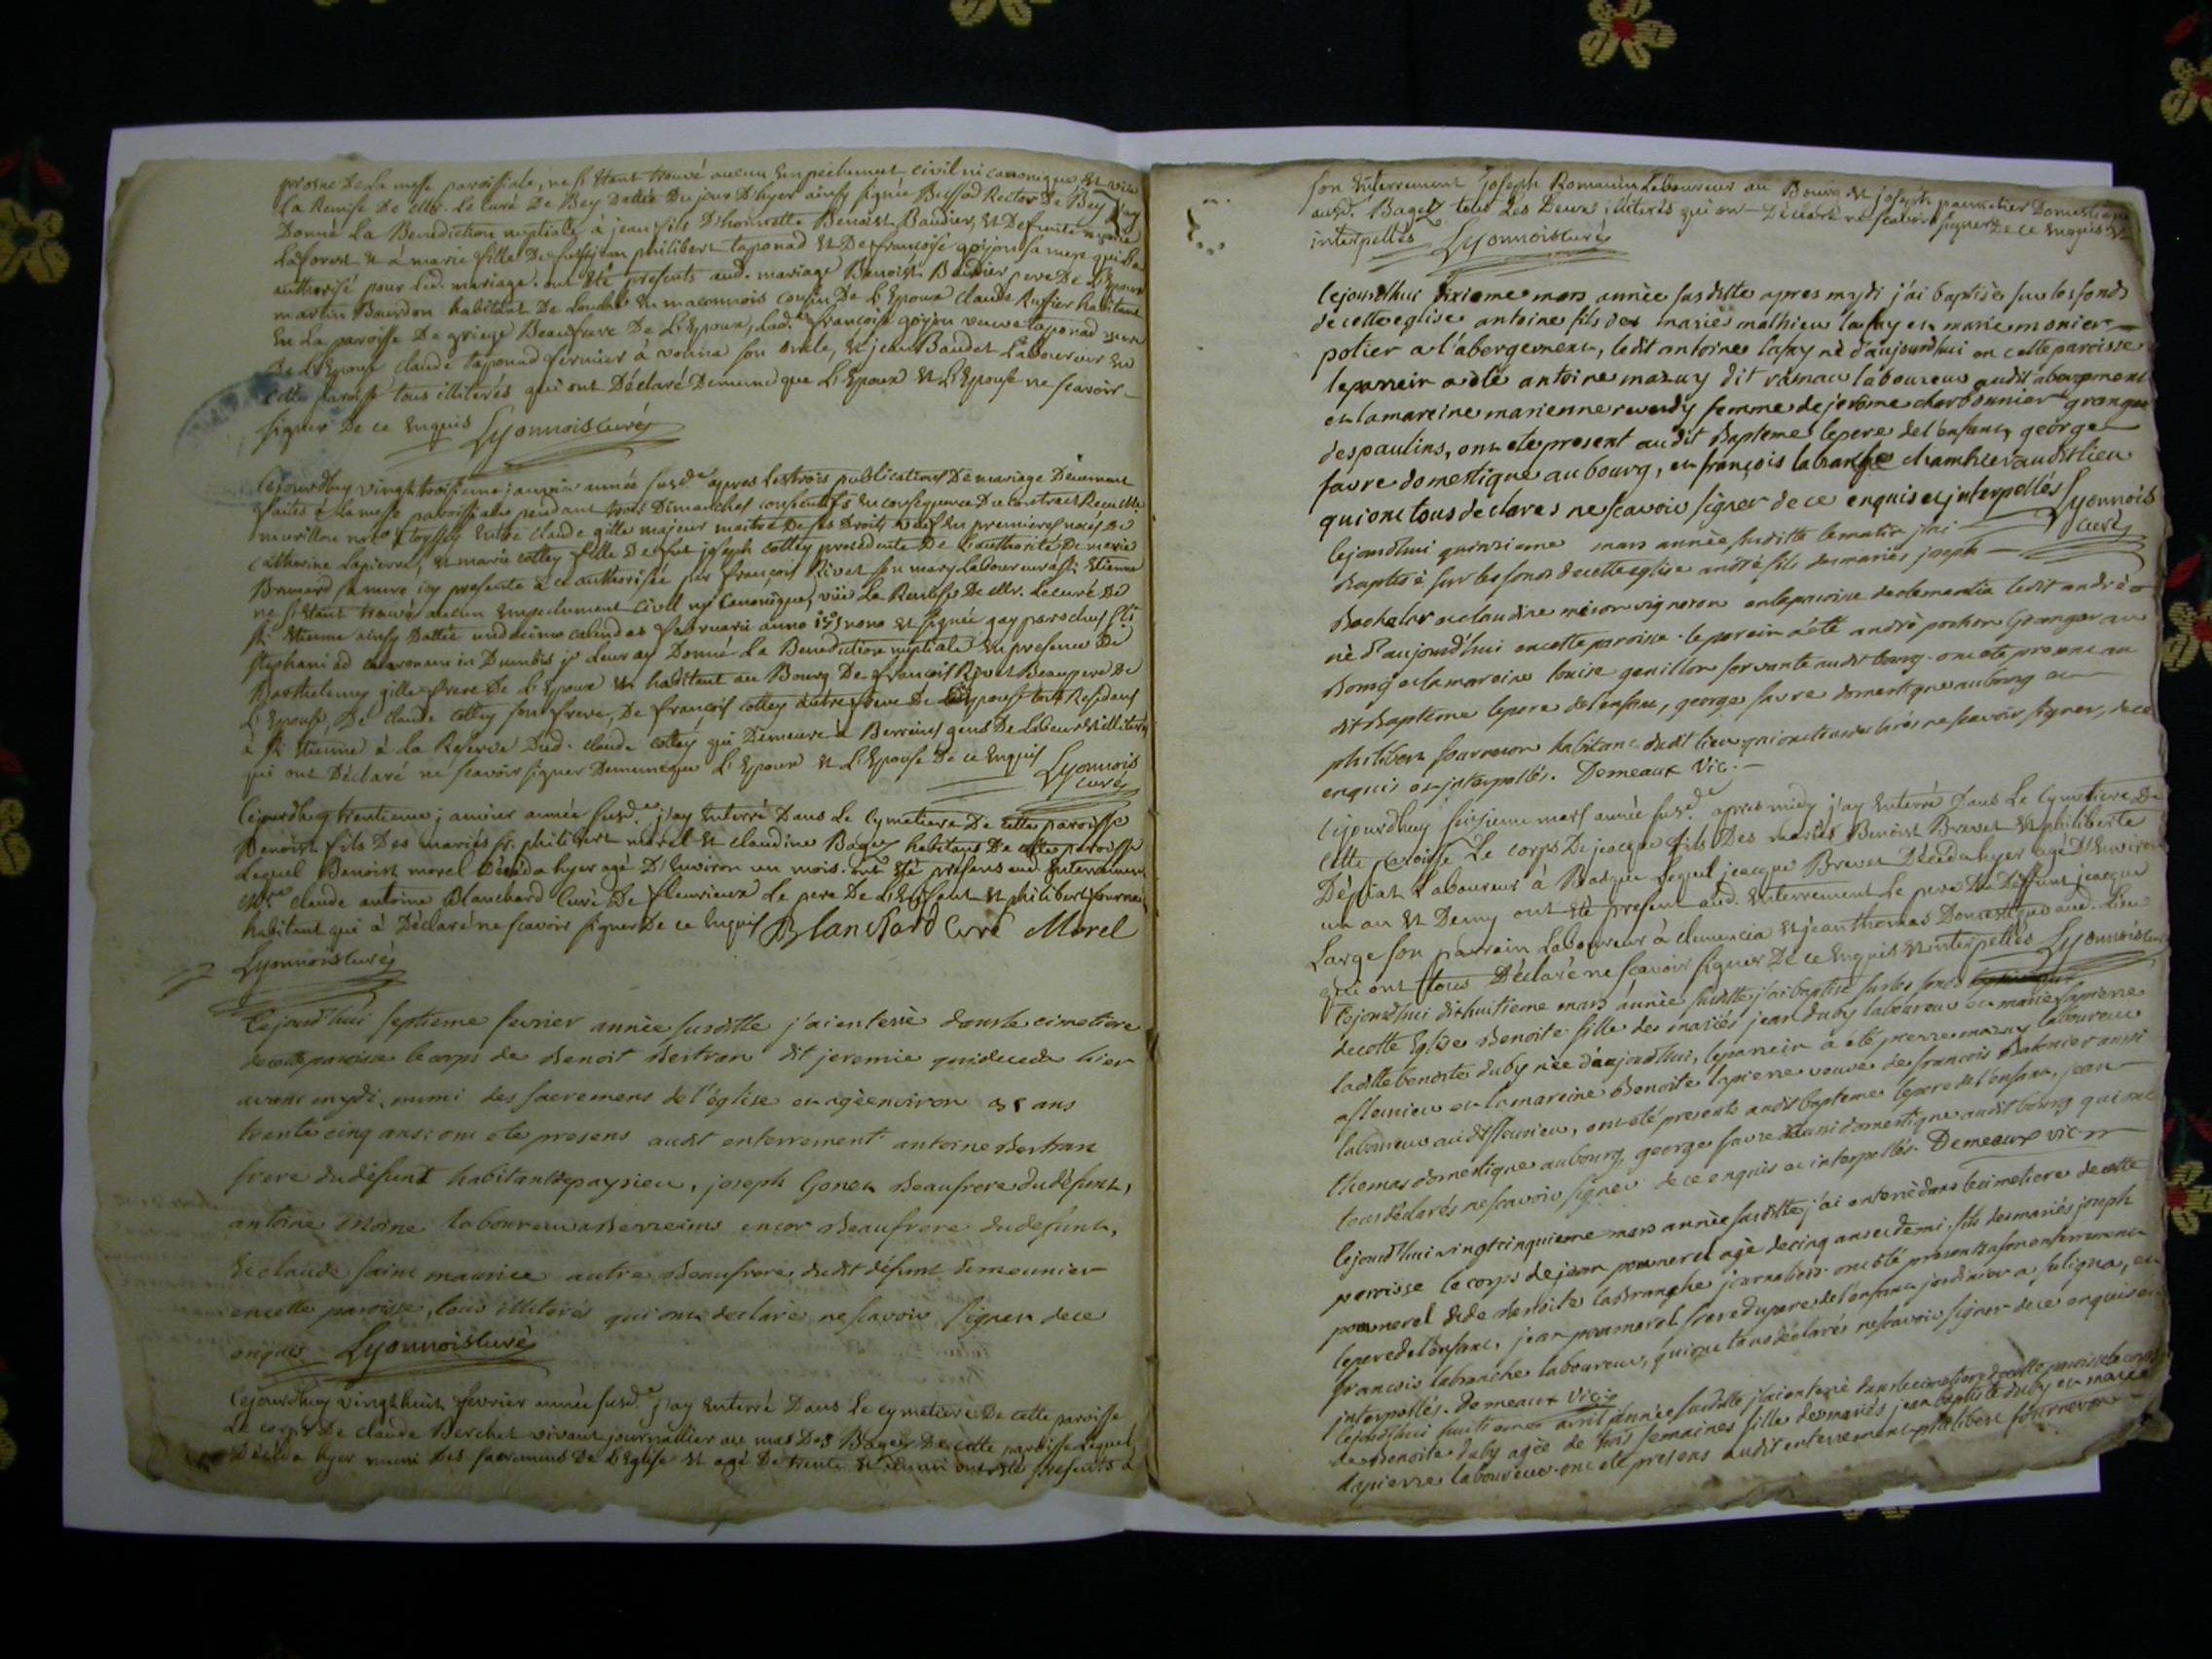 prosne De La messe paroissiale, ne s'étant trouvé aucun Empechement civil ni canonique Et vu
La Remise De Mr. Le curé De Bey Dattée Du jour D'hyer ainsy signée Recteur De Bey j'ay
Donné La Benediction nuptiale à jean fils D'honnette Benoist Baudier, Et Defunte
Laforest Et à marie fille De feu jean philibert taponad Et De françoise goyon sa mere qui l'a
authorisé pour led. mariage. ont Eté presents aud. mariage Benoist Baudier pere De L'Epoux
martin Bourdon habitant De En maconnois cousin De L'Epoux claude habitant
En La paroisse De griege Beaufrere De L'Epoux, lad. françoise goyon veuve taponad mere
De L'Epouse claude taponad fermier à son oncle, Et jean Baudet Laboureur En
cette paroisse tous illiterés qui ont Déclaré Demême que L'Epoux Et L'Epouse ne scavoir
signer De ce Enquis Lyonnois curé
Cejourdhuy vingt troisieme janvier année susd. apres Les trois publications De mariage Deüement
faites à la messe paroissiale pendant trois Dimanches consecutifs En consequence Du contract Reçu Me
murillon no.re toyssey Entre claude gille majeur maitre De ses Droits veuf En premieres noces De
catherine Lapierre, Et marie cottey fille De feu joseph cottey procedente De L'authorité De marie
Brunard sa mere icy presente à ce authorisée par françois Rivet son mary Laboureur à St. Etienne
ne s'étant trouvé aucun Empechement Civil ny Canonique, vüe La Remise De Mr. Lecuré De
St. Etienne ainsy Dattée undecimo calendas februarii anno nono Et signée gay parochus Sti
stephani je Leur ay Donné La Benediction nuptiale En presence De
Barthelemy gille frere De L'Epoux Et habitant au Bourg De françois Rivet Beaupere De
L'Epouse, De claude cottey son frere, De françois cottey autre frere De L'Epouse tous Residans
à St. Etienne à La Reserve Dud. claude cottey qui Demeure à Berreins gens De Labeur Et illiterés
qui ont Déclaré ne scavoir signer Demême que L'Epoux Et L'Epouse De ce Enquis Lyonnois
curé
Cejourdhuy trentieme janvier année susd. j'ay Enterré Dans Le cymetiere De cette paroisse
Benoist fils Des mariés Sr. philibert morel Et claudine Bagey habitans De cette paroisse
Lequel Benoist morel Décéda hyer agé D'Environ un mois. ont Eté presens aud. Enterrement
Mre claude antoine Blanchard Curé De fleurieux Le pere De L'Enfant Et philibert fourneron
habitant qui à Déclaré ne scavoir signer De ce Enquis Blanchard Curé Morel
Lyonnois curé
Cejourd'hui septieme fevrier année susditte j'ai enterré dans le cimetiere
de cette paroisse le corps de Benoit Bertran dit jeremie qui deceda hier
avant mydi, muni des sacremens de l'église et agé environ 35 ans
trente cinq ans; ont ete presens audit enterrement antoine Bertran
frere du défunt habitant de paysieu, joseph Gonet Beaufrere du défunt,
antoine Moine laboureur a Berreins encor Beaufrere du défunt,
Et claude saint maurice autre Beaufrere dudit défunt demeunier
en cette paroisse, tous illiterés qui ont declaré ne scavoir signer de ce
enquis Lyonnois curé
Cejourdhuy vingt huit fevrier année susd. j'ay Enterré Dans Le cymetiere De cette paroisse
Le corps De claude Berchet vivant journallier au mas Des Bagey De cette paroisse Lequel
Décéda hyer muni Des sacremens De L'Eglise Et agé De trente Et demi ont Eté presents à
son Enterrement joseph Romanin Laboureur au Bourg Et joseph pannetier Domestique
ausd. Bagey tous Les Deux illiterés qui ont Déclaré ne scavoir signer De ce Enquis Et
interpellés Lyonnois curé
Cejourdhui dixieme mars année susditte apres mydi j'ai baptisé sur les fonds
de cette eglise antoine fils des mariés mathieu lafay et marie monier
potier a l'abergement, ledit antoine lafay né d'aujourdhui en cette paroisse
le parrein a été antoine mazuy dit rameau laboureur audit abergement
et la mareine marienne femme de jerome charbonnier granger
des paulins, ont ete present audit Bapteme le pere de l'enfant, george
favre domestique au bourg, et françois labranche chambrier audit lieu
qui ont tous declarés ne scavoir signer de ce enquis et interpellés Lyonnois
curé
Cejourdhui quinzieme mars année susditte le matin j'ai
Baptisé sur les fonds de cette eglise andré fils des mariés joseph
Bachelar et claudine vigneron en la paroisse de clemencia ledit andré
né d'aujourd'hui en cette paroisse. le parein a été andré pochon Granger au
Bourg et la mareine louise genillon servante audit bourg. ont ete present au
dit Bapteme le pere de l'enfant, george favre domestique au bourg et
philibert fourneron habitant dudit lieu qui ont tous declarés ne scavoir signer, de ce
enquis et interpellés. Demeaux Vic.
Cejourdhuy seizieme mars année susd. apres midy j'ay Enterré Dans Le cymetiere De
cette paroisse Le corps De jacque fils Des mariés Benoist Brevet Et philiberte
Dépiat Laboureur à Lequel jacque Brevet Décéda hyer agé D'Environ
un an Et Demy ont Eté presens aud. Enterrement Le pere Du Deffunt jacque
Large son parrein Laboureur à clemencia Et jean thomas Domestique aud. Lieu
qui ont tous Déclaré ne scavoir signer De ce Enquis Et interpellés Lyonnois curé
Cejourdhui dixhuitieme mars année susditte j'ai baptisé sur les fonds
de cette Eglise Benoite fille des mariés jean duby laboureur et marie lapierre
laditte benoite duby née d'aujourdhui, le parrein a été pierre mazuy laboureur
a fleurieu et la mareine Benoite lapierre veuve de francois aussi
laboureur audit fleurieu, ont eté presents audit bapteme le pere de l'enfant, jean
thomas domestique au bourg, george favre aussi domestique audit bourg qui ont
tous déclarés ne scavoir signer de ce enquis et interpellés. Demeaux vic
Cejourd'hui vingt cinquieme mars année susditte j'ai enterré dans le cimetiere de cette
paroisse le corps de jean pommerel agé de cinq ans et demi, fils des mariés joseph
pommerel et de Benoite labranche journaliers. ont été presents a son enterrement
le pere de l'enfant, jean pommerel frere du pere de l'enfant jardinier a suligna, et
francois labranche laboureur, qui ont tous déclarés ne scavoir signer de ce enquis et
interpellés. Demeaux Vic.
Cejourdhui huitieme avril année susditte j'ai enterré dans le cimetiere de cette paroisse le corps
de Benoite duby agée de trois semaines fille des mariés jean baptiste duby et marie
lapierre laboureur. ont été presens audit enterrement philibert fourneron